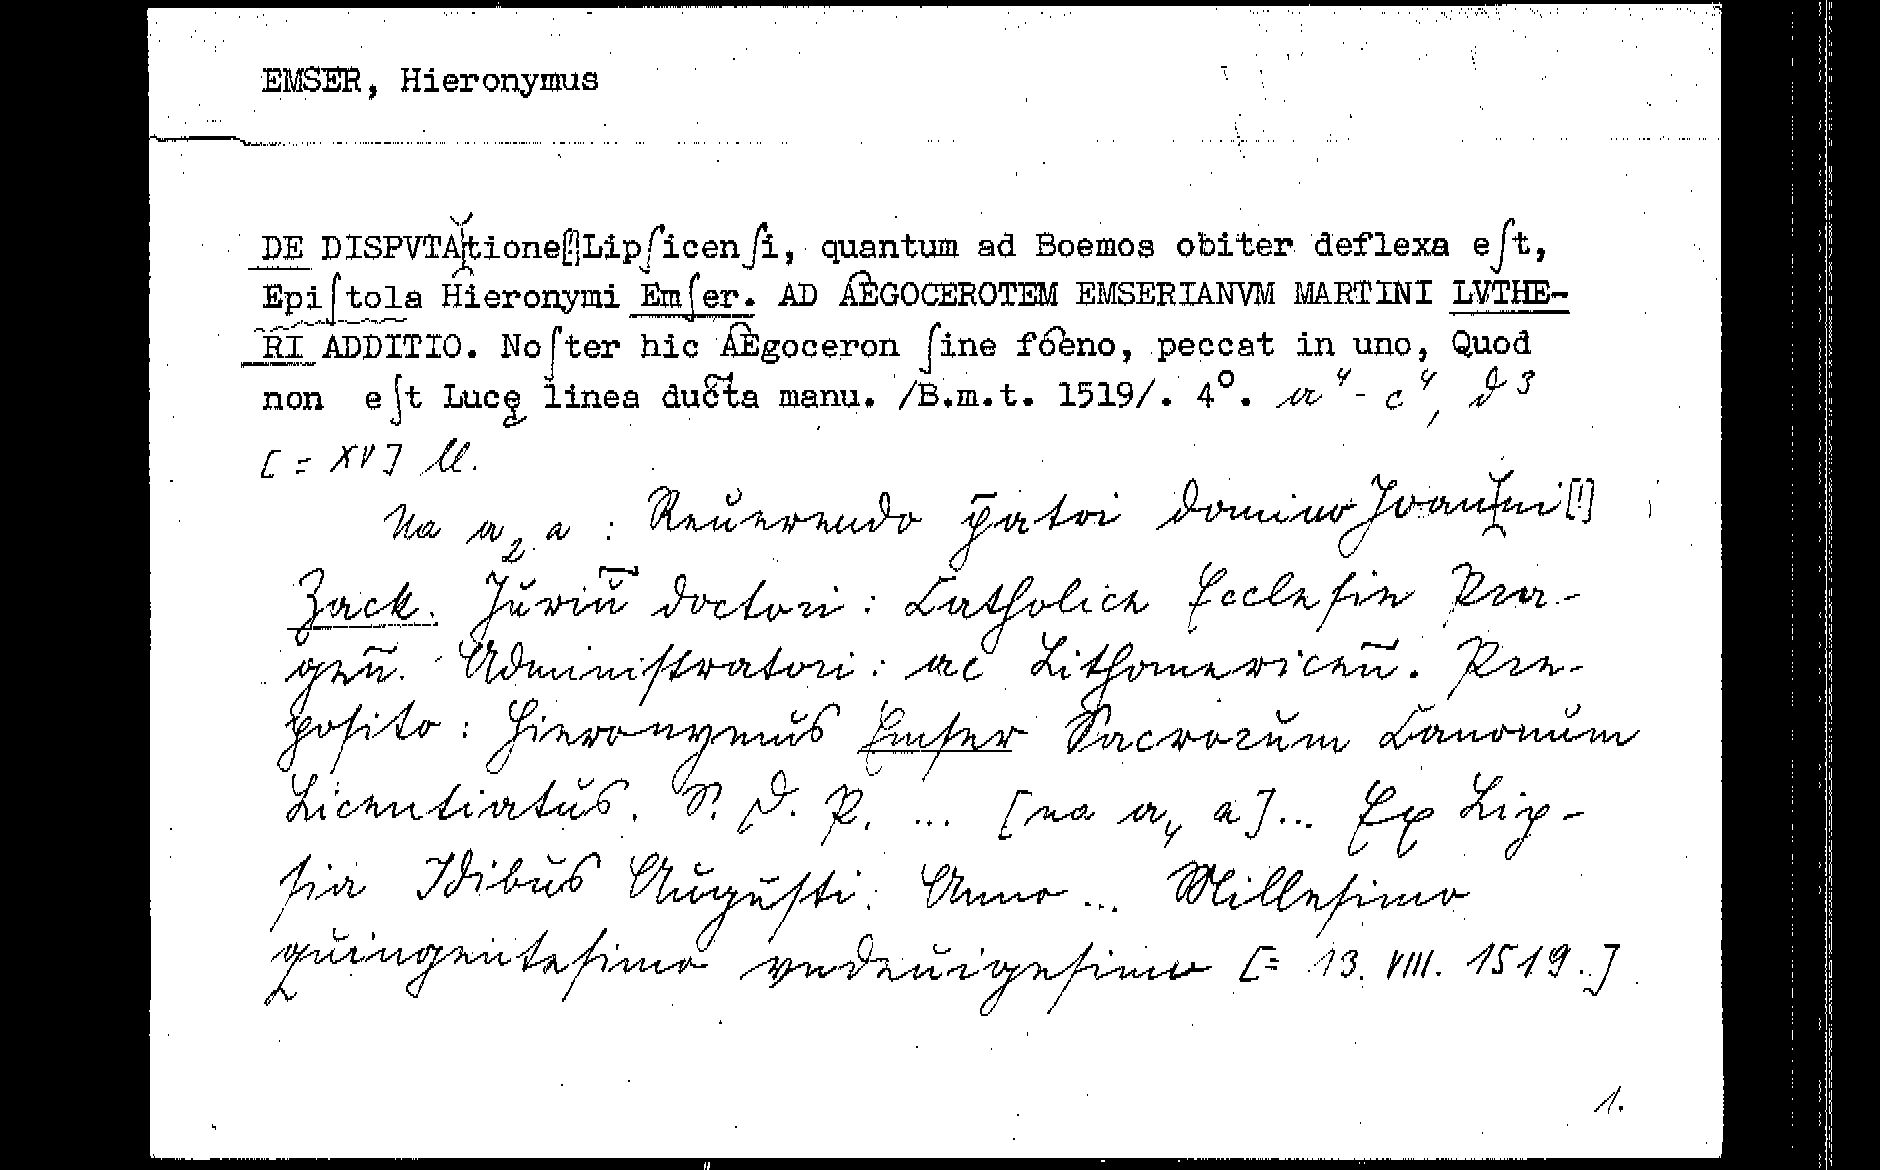 EMSER, Hieronymus
DE DISPVTAtione[!]Lipſicenſi, quantum ad Boemos obiter deflexa eſt,
Epiſtola Hieronymi Emſer. AD AEGOCEROTEM EMSERIANVM MARTINI LVTHE-
RI ADDITIO. Noſter hic AEgoceron ſine foeno, peccat in uno, Quod
non eſt Lucę linea ducta manu. /B.m.t. 1519/. 4°. a⁴ - c⁴, d³
[= XV] ll.
Na a₂ a : Reuerendo p̄atri domino Joanni [!]
Zack. Juriū doctori : Catholice Eccleſie Pra-
gen̄. Adminiſtratori : ac Lithomericen̄. Pre-
poſito : Hieronymus Emſer Sacrorum Canonum
Licentiatus. S. D. P. ... [na a₄ a]... Ex Lip-
ſia Idibus Auguſti : Anno ... Milleſimo
quingenteſimo vndeuigeſimo [= 13. VIII. 1519.]
1.